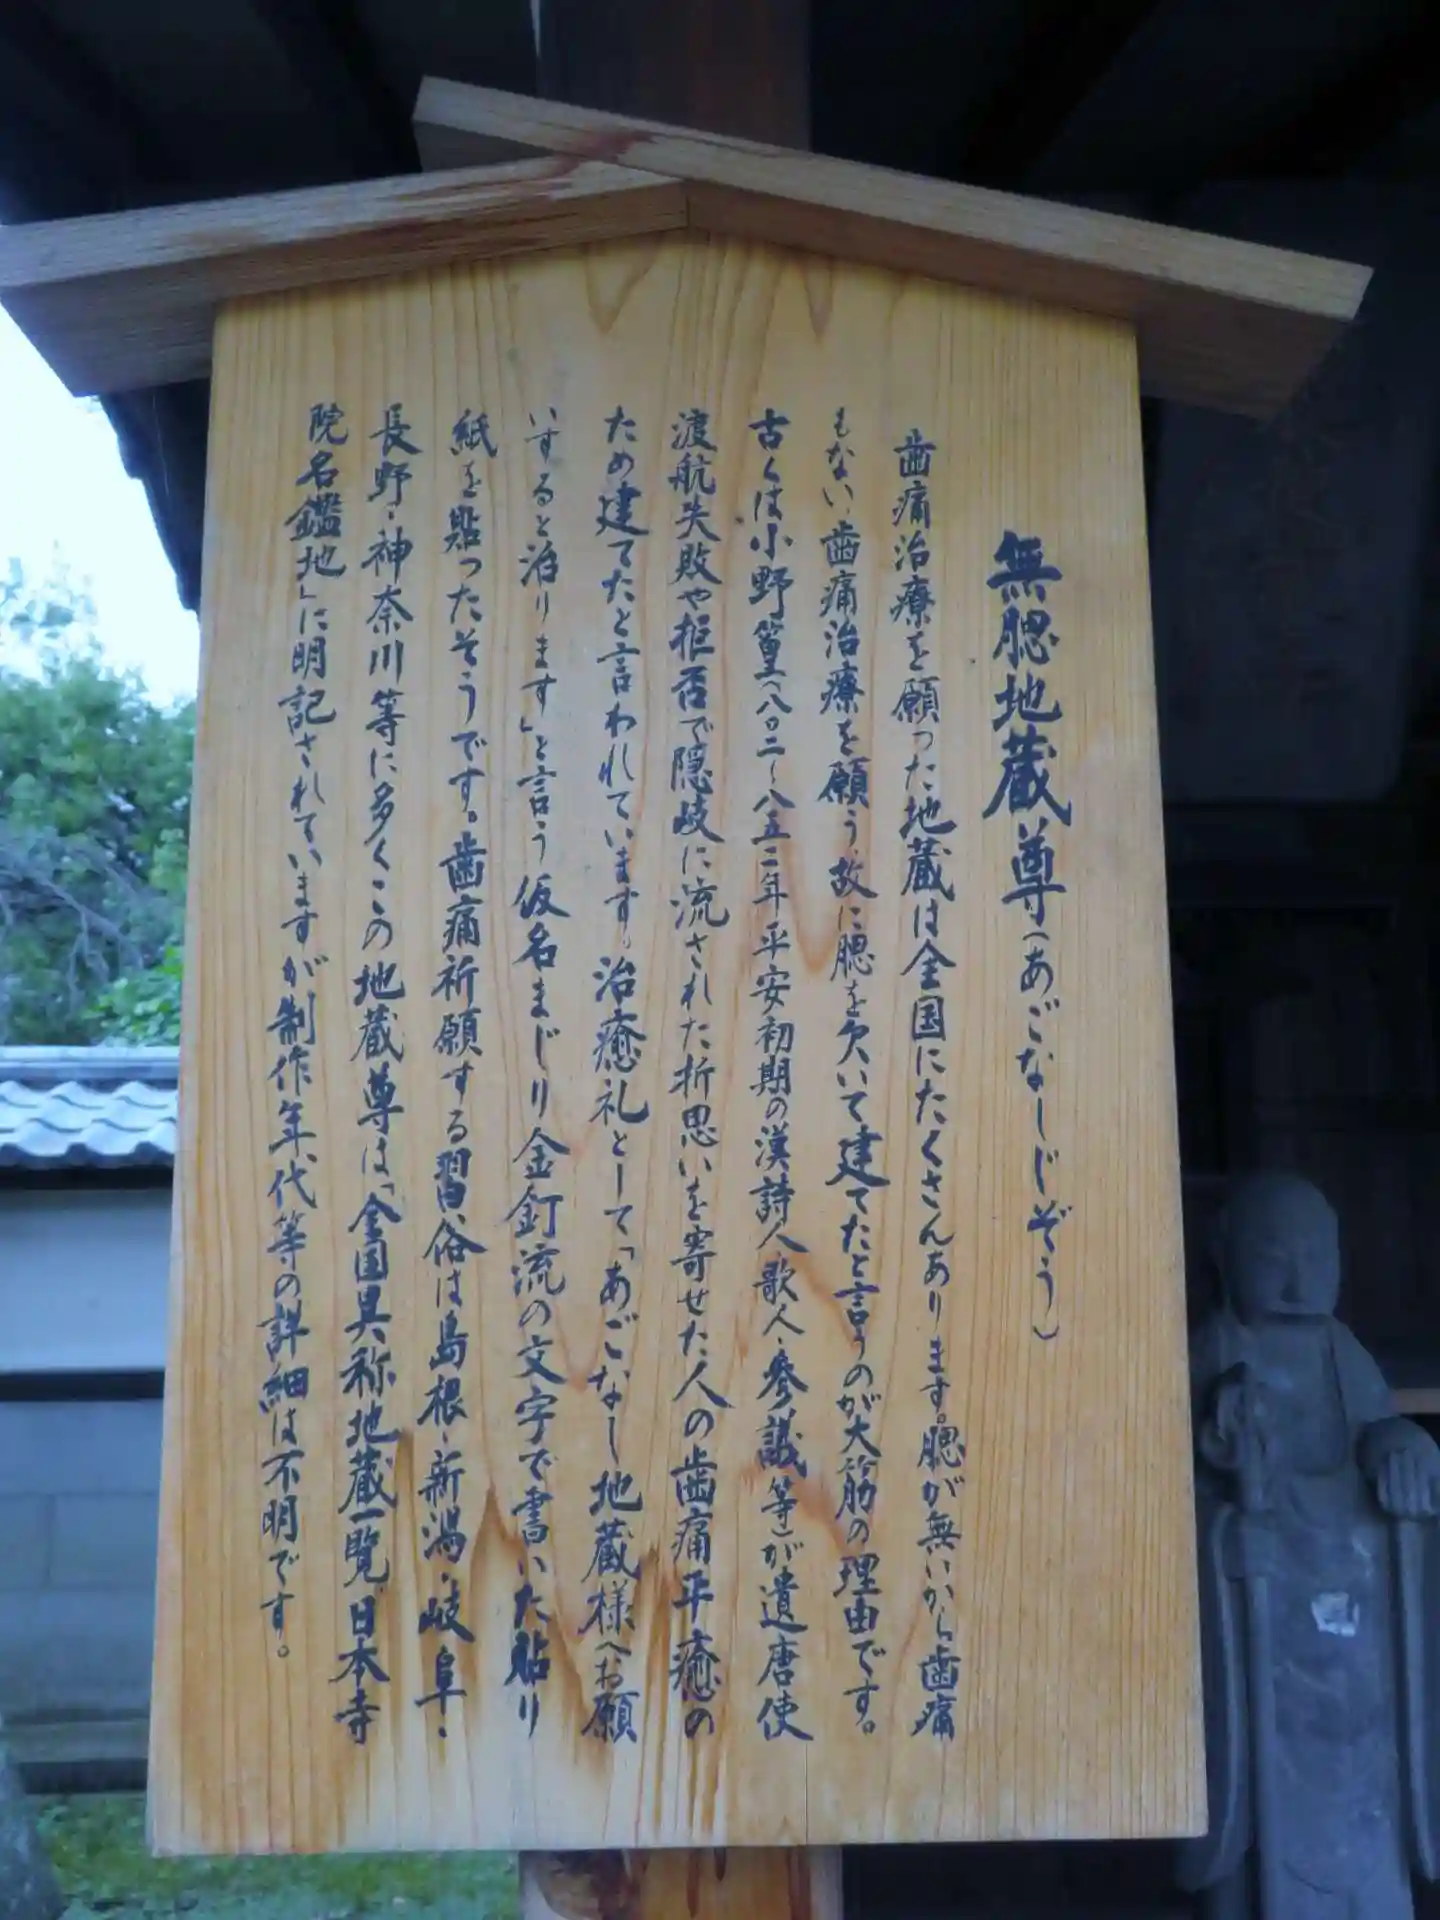 無腮地蔵尊(あごなしじぞう)
歯痛治療を願った地蔵は全国にたくさんあります。腮が無いから歯痛
もない、歯痛治療を願う、故に腮を欠いて建てたと言うのが大筋の理由です。
古くは小野篁(八〇二〜八五二年 平安初期の漢詩人歌人・参議等)が遣唐使
渡航失敗や拒否で隠岐に流された折思いを寄せた人の歯痛平癒の
ため建てたと言われています。治癒礼として「あごなし地蔵様へお願
いすると治ります」と言う仮名まじり金釘流の文字で書いた貼り
紙を貼ったそうです。歯痛祈願する習俗は島根・新潟・岐阜・
長野・神奈川等に多くこの地蔵尊は「全国異称地蔵一覧・日本寺
院名鑑地」に明記されていますが制作年代等の詳細は不明です。